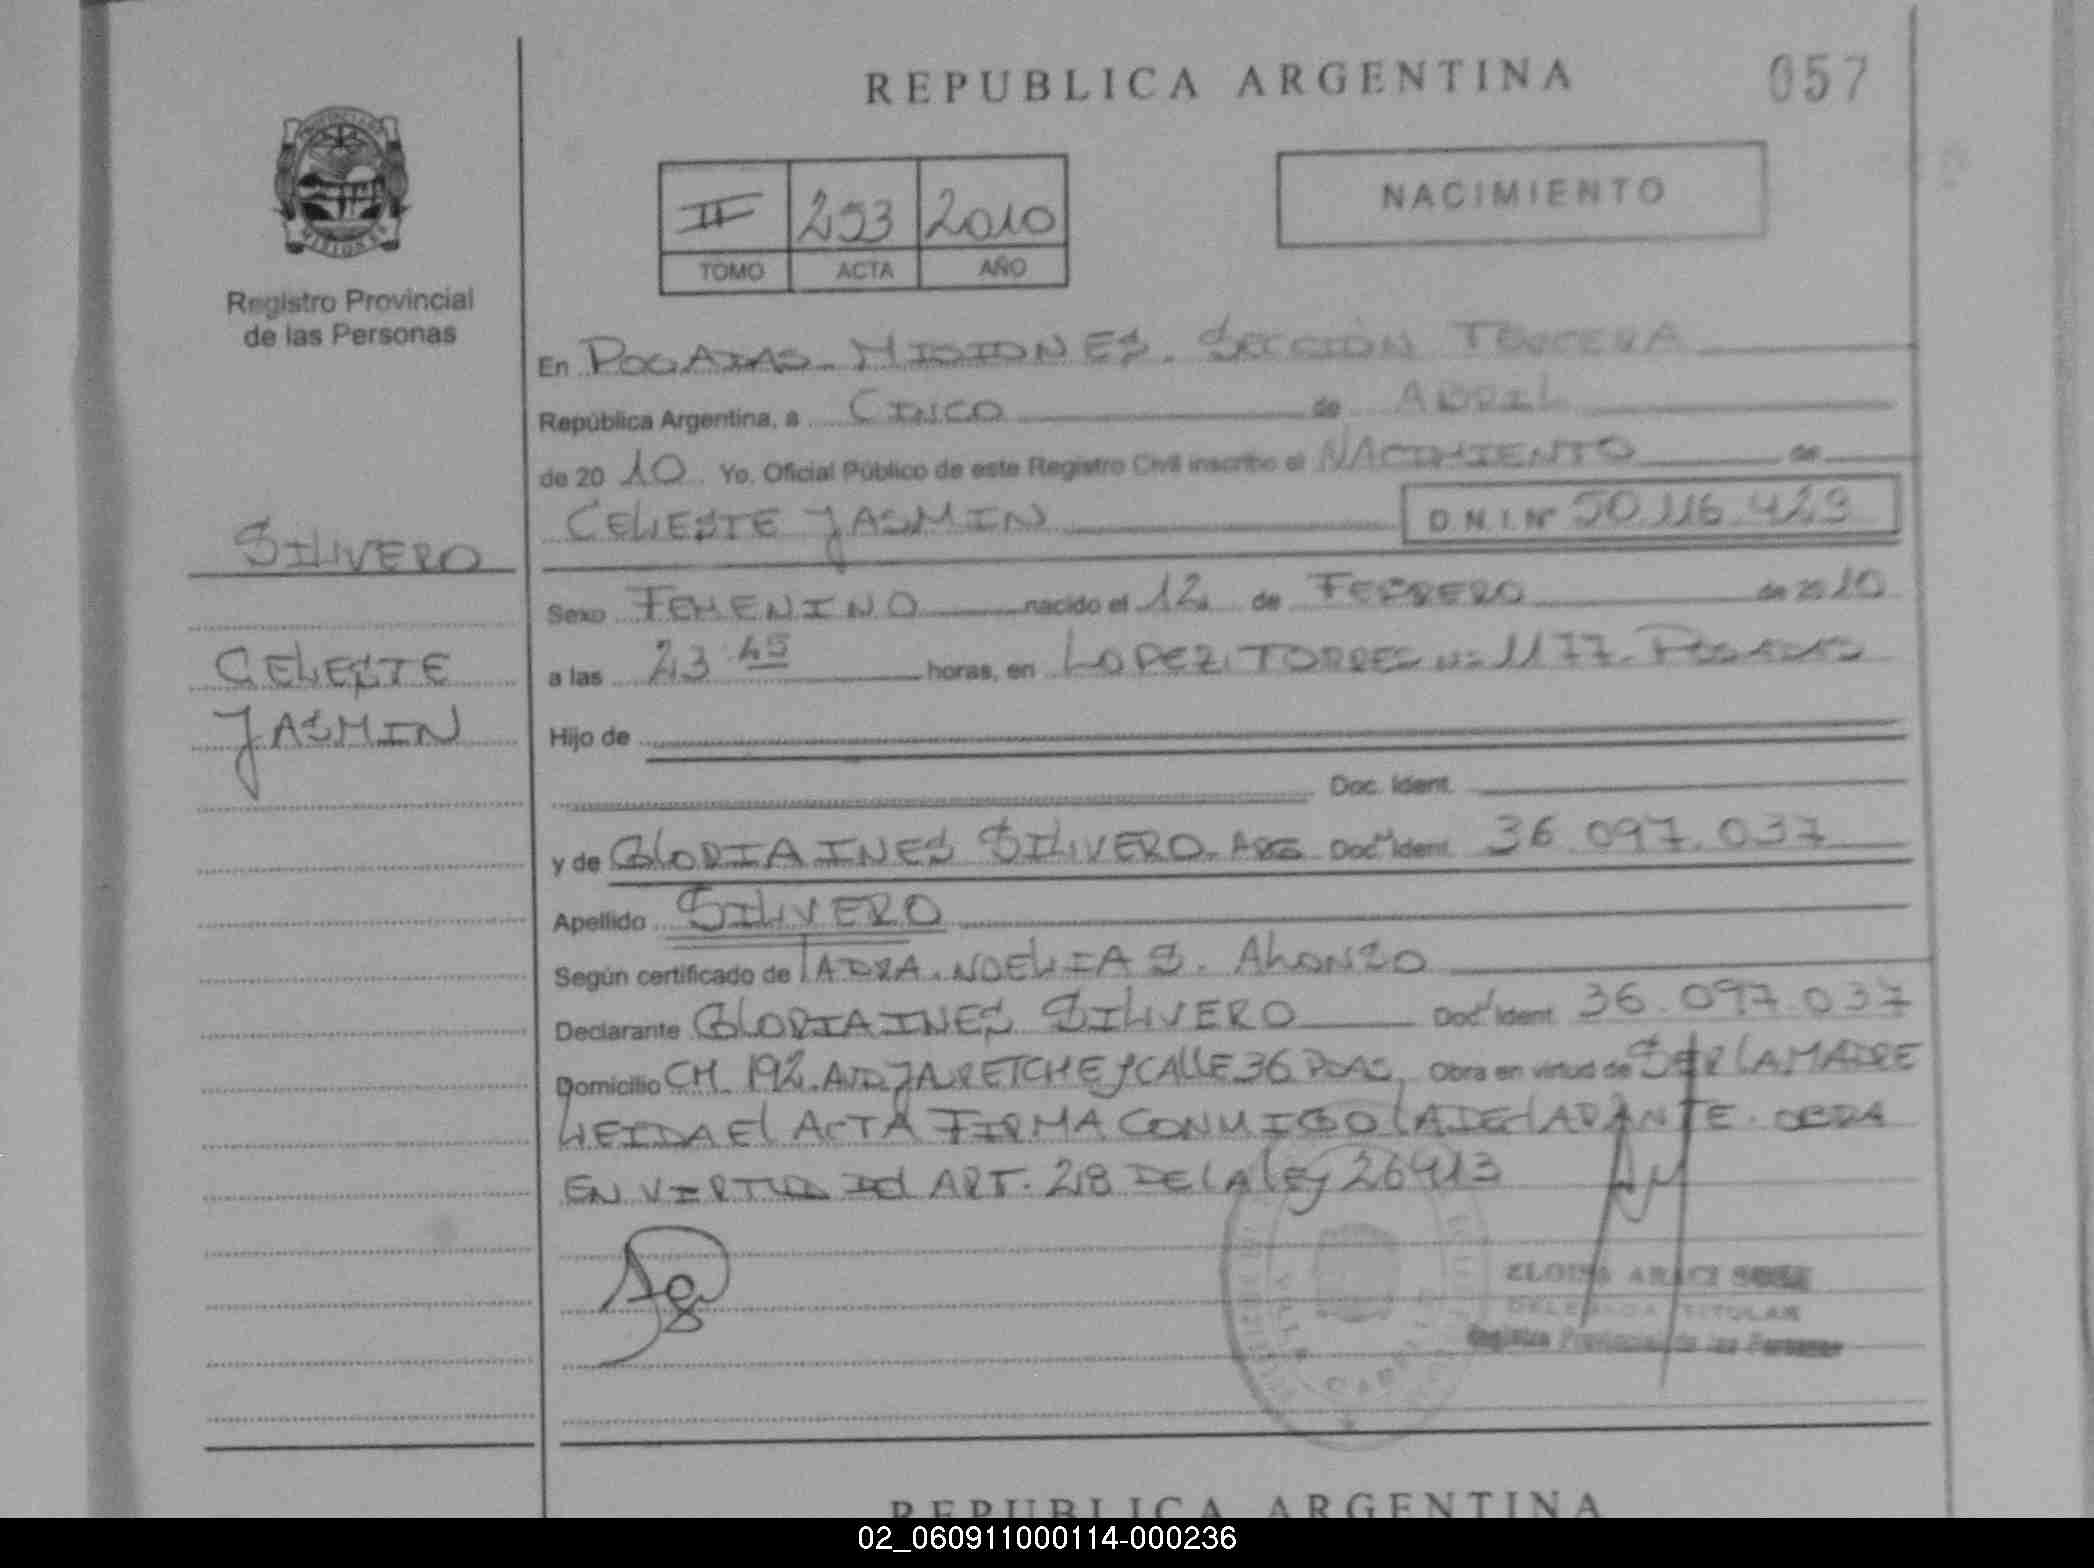 REPUBLICA ARGENTINA
057
PROVINCIA DE
MISIONES
Registro Provincial
de las Personas
II 293 2010
TOMO ACTA AÑO
NACIMIENTO
En POSADAS - MISIONES. SECCION TERCERA
República Argentina, a CINCO de ABRIL
de 2010 Yo, Oficial Público de este Registro Civil inscribo el NACIMIENTO de
CELESTE JASMIN D.N.I. Nº 50.116.429
SILVERO
CELESTE
JASMIN
Sexo FEMENINO nacido el 12 de FEBRERO de 2010
a las 23.45 horas, en LOPEZ TORRES Nº 1177 - POSADAS
Hijo de
Doc. Ident.
y de GLORIA INES SILVERO - ARG Doc. Ident. 36.097.037
Apellido SILVERO
Según certificado de LA DRA. NOELIA S. ALONZO
Declarante GLORIA INES SILVERO Doc. Ident. 36.097.037
Domicilio CH. 192. AVD JAURETCHE Y CALLE 36 PDAS, Obra en virtud de SER LA MADRE
LEIDA El ACTA FIRMA CONMIGO lA DEClARANTE. OBRA
EN VIRTUD DEl ART. 28 DE lA ley 26413
ELOISA ARACI
DELEGADA TITULAR
Registro Provincial de las Personas
REPUBLICA ARGENTINA
02_060911000114-000236